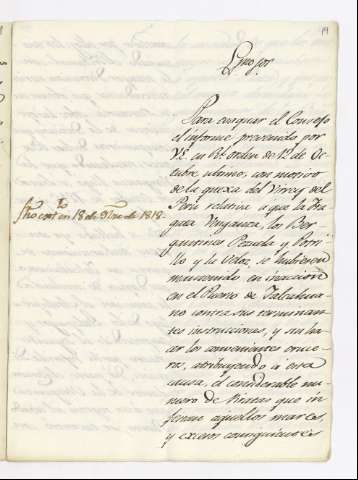 19
Exmo Sor.
Para evaquar el Consejo
el informe prevenido por
V.E. en Rl. orden de 12 de Oc-
tubre ultimo, con motivo
de la quexa del Virrey del
Perú relativa a que la Fra-
gata Venganza, los Ber-
gantines Pezuela y Potri-
llo y la Veloz, se hubiesen
mantenido en inaccion
en el Puerto de Talcahua-
no contra sus terminan-
tes instrucciones, y sin ha-
cer los convenientes cruce-
ros, atribuyendo a esta
causa, el considerable nu-
mero de Piratas que in-
festan aquellos mares,
y excesos consiguientes
en 18 de 9bre de 1818.